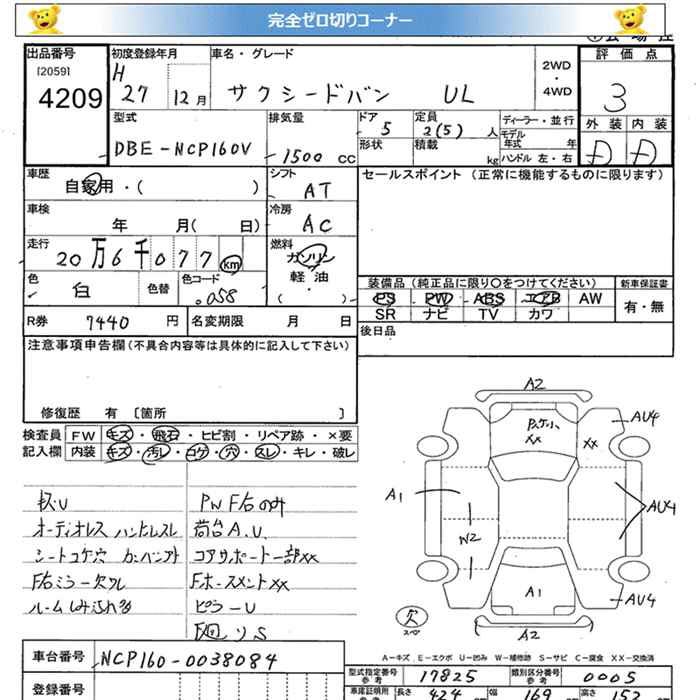 完全ゼロ切りコーナー
出品番号
[2059]
4209
初度登録年月
H
27
12月
車名・グレード
サクシードバン UL
2WD
・
4WD
評価点
3
外装 内装
D D
型式
DBE-NCP160V
排気量
1500 CC
ドア
5
定員
2(5) 人
形状
積載
kg
ディーラー・並行
モデル
年式 年
ハンドル 左・右
車歴
自家用・( )
シフト
AT
セールスポイント (正常に機能するものに限ります)
車検
年 月( 日)
冷房
AC
走行
20万6千077 km
燃料
ガソリン
軽・油
( )
色
白
色替
色コード
058
装備品 (純正品に限り○をつけてください)
PS PW ABS エアB AW
SR ナビ TV カワ
新車保証書
有・無
R券 7440 円
名変期限 月 日
後日品
注意事項申告欄(不具合内容等は具体的に記入して下さい)
修復歴 有 [箇所 ]
検査員
記入欄
FW キズ・飛石・ヒビ割・リペア跡・×要
内装 キズ・汚レ・コゲ・穴・スレ・キレ・破レ
オーディオレス ハンドルスレ
シートコゲ穴
F右ミラーカクレ
ルームしみ汚れ多
PW F右のみ
荷台A.U
コアサポート一部XX
Fホースメント XX
ピラーU
下回リS
A2
XX
XX
AU4
A1
W2
AU4
A1
AU4
欠
スペア
A2
A-キズ E-エクボ U-凹み W-補修跡 S-サビ C-腐食 XX-交換済
車台番号
NCP160-0038084
登録番号
型式指定番号
参考
17825
類別区分番号
参考
0005
車庫証明用
参考
長さ
424
cm
幅
169
cm
高さ
152
cm